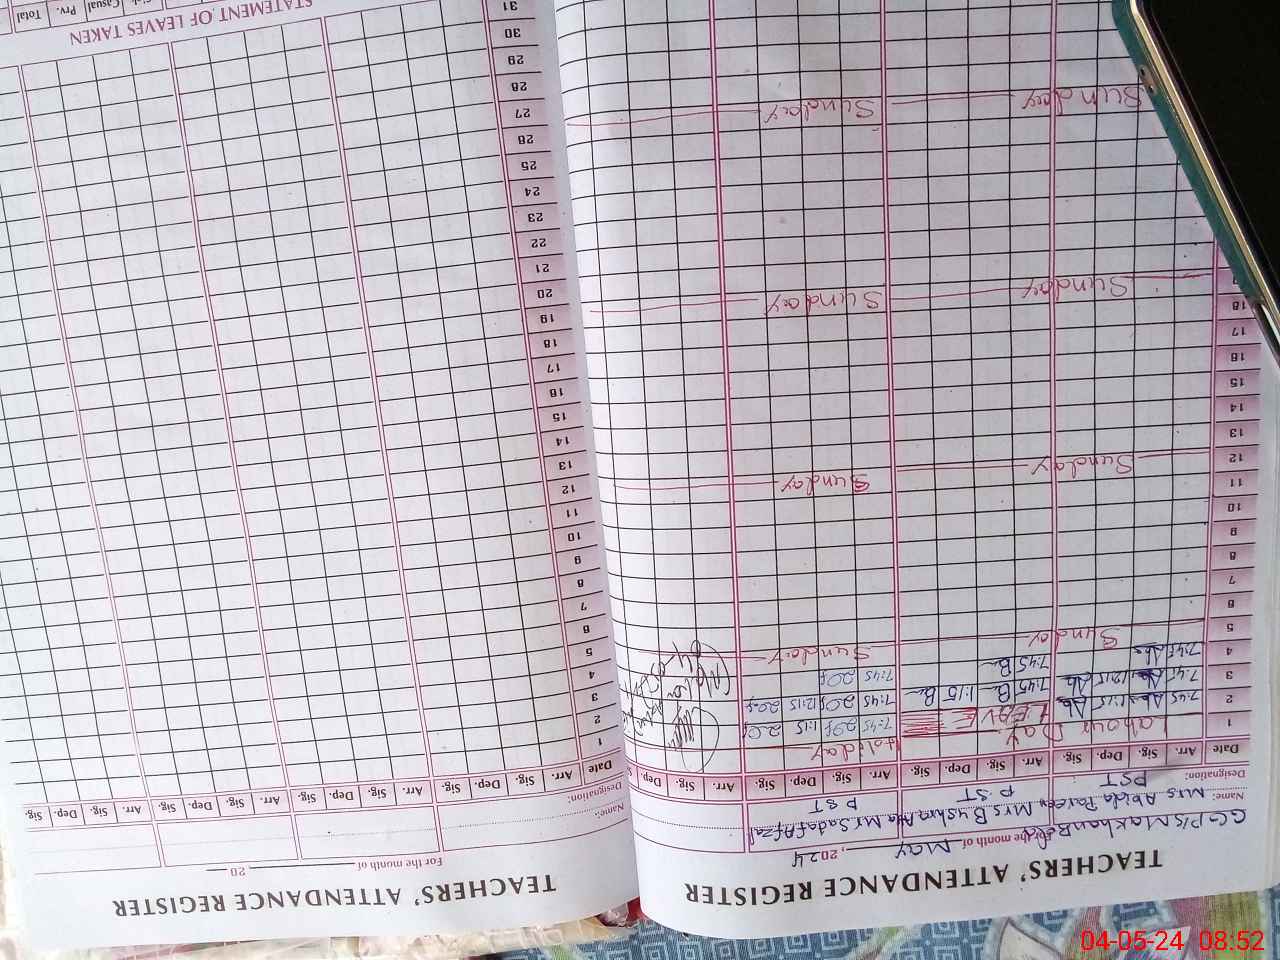 TEACHERS' ATTENDANCE REGISTER
GGP/S Makhan Bela For the month of May, 2024
Name: Mrs Abida Parveen Mrs Bushra Atta Mr Sadaf Afzal
Designation: PST P.ST P ST
Date Arr. Sig. Dep. Sig. Arr. Sig. Dep. Sig. Arr. Sig. Dep. Sig. Arr. Sig. Dep.
1 Labour Day Holiday
2 7:45 1:15 LEAVE 7:45 1:15
3 7:45 12:15 7:45 1:15 7:45 12:15
4 7:45 7:45 7:45
5 Sunday Sunday
6
7
8
9
10
11
12 Sunday Sunday
13
14
15
16
17
18
Sunday Sunday
Sunday Sunday
TEACHERS' ATTENDANCE REGISTER
For the month of 20
Name:
Designation:
Date Arr. Sig. Dep. Sig. Arr. Sig. Dep. Sig. Arr. Sig. Dep. Sig. Arr. Sig. Dep. Sig.
1
2
3
4
5
6
7
8
9
10
11
12
13
14
15
16
17
18
19
20
21
22
23
24
25
26
27
28
29
30
31
STATEMENT OF LEAVES TAKEN
Casual Prv. Total
04-05-24 08:52